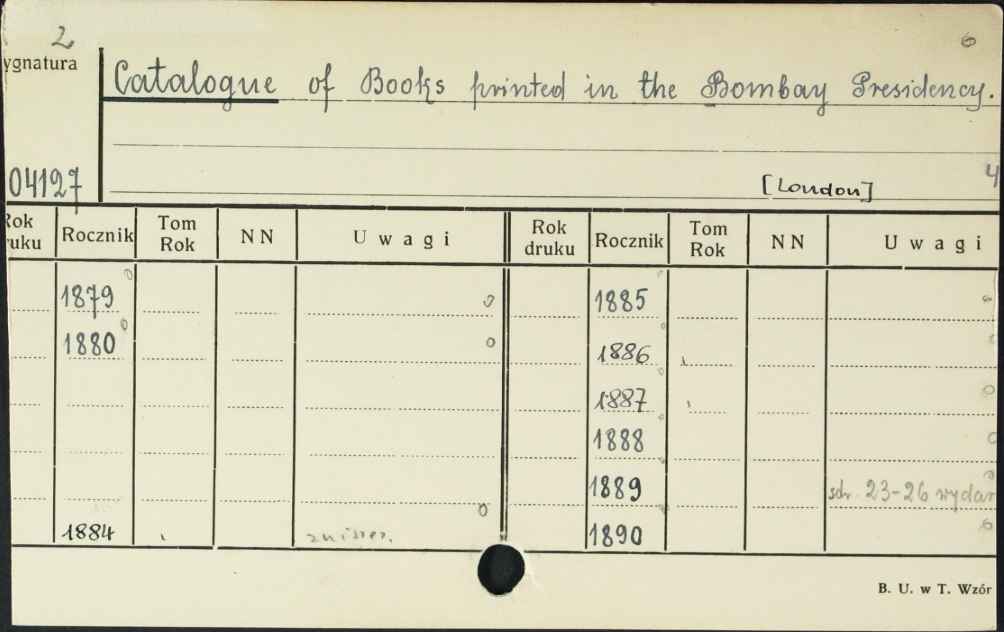 2 6
ygnatura
Catalogue of Books printed in the Bombay Presidency.
04127 [London] 4
Rok druku Rocznik Tom Rok NN Uwagi Rok druku Rocznik Tom Rok NN Uwagi
1879 1885
1880 1886
1887
1888
1889 23-26 wydar
1884 zniszcz. 1890
B. U. w T. Wzór